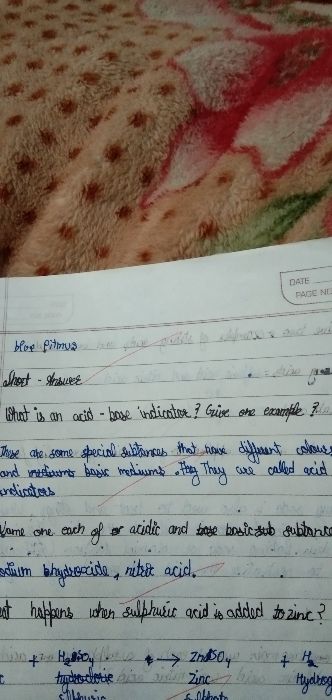 DATE
PAGE NO
blue litmus
Short - Answer
What is an acid - base indicator? Give one example?
These are some special substances that have different colours
and mediums basic mediums. They are called acid
indicators
Name one each of or acidic and base basic sub substance
odium hydroxide, nitric acid.
at happens when sulphuric acid is added to zinc?
+ H2SO4 → ZnSO4 + H2
Zinc Hydro
Sulphuric Sulphate